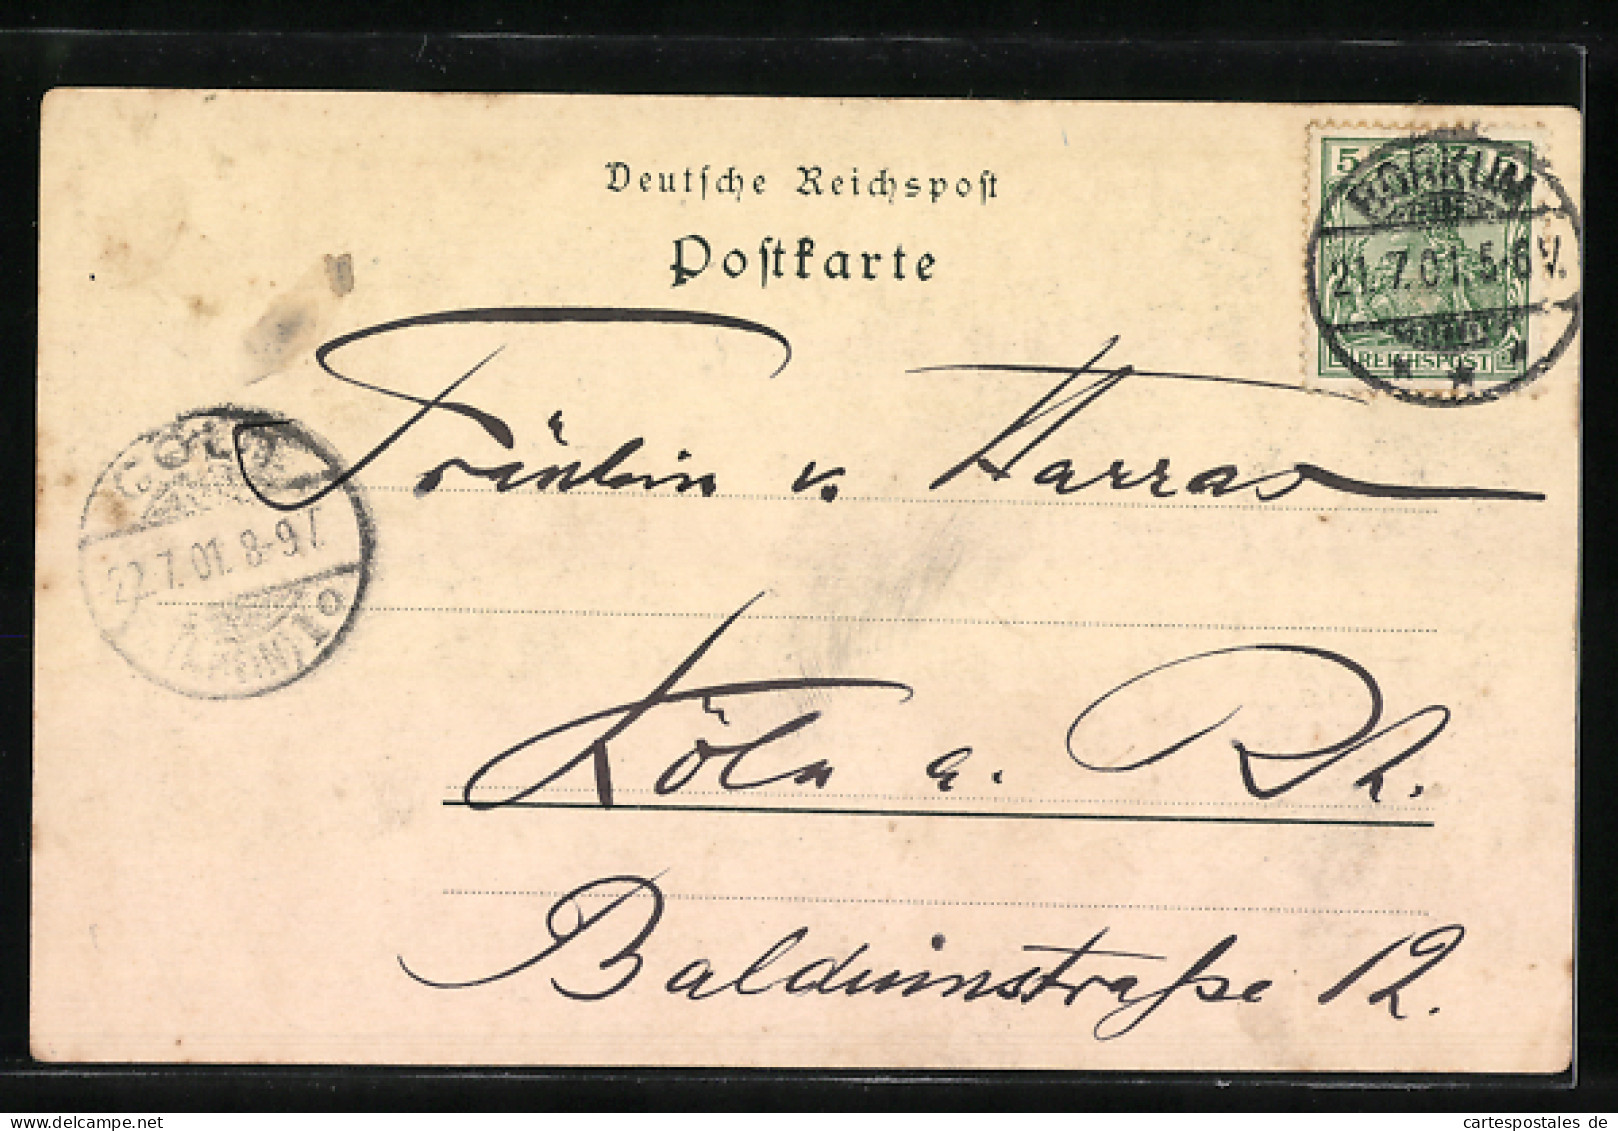 Deutsche Reichspost
Postkarte
5
BORKUM
21.7.01.5-6V.
REICHSPOST
Fräulein v. Harras
CÖLN
22.7.01.8-9V.
(RHEIN) 10
Köln a. Rh.
Balduinstraße 12.
cartespostales.de